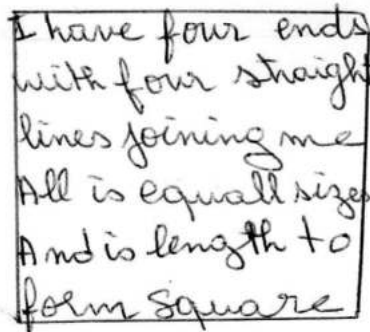 I have four ends
with four straight
lines joining me
All is equall sizes
And is length to
form square